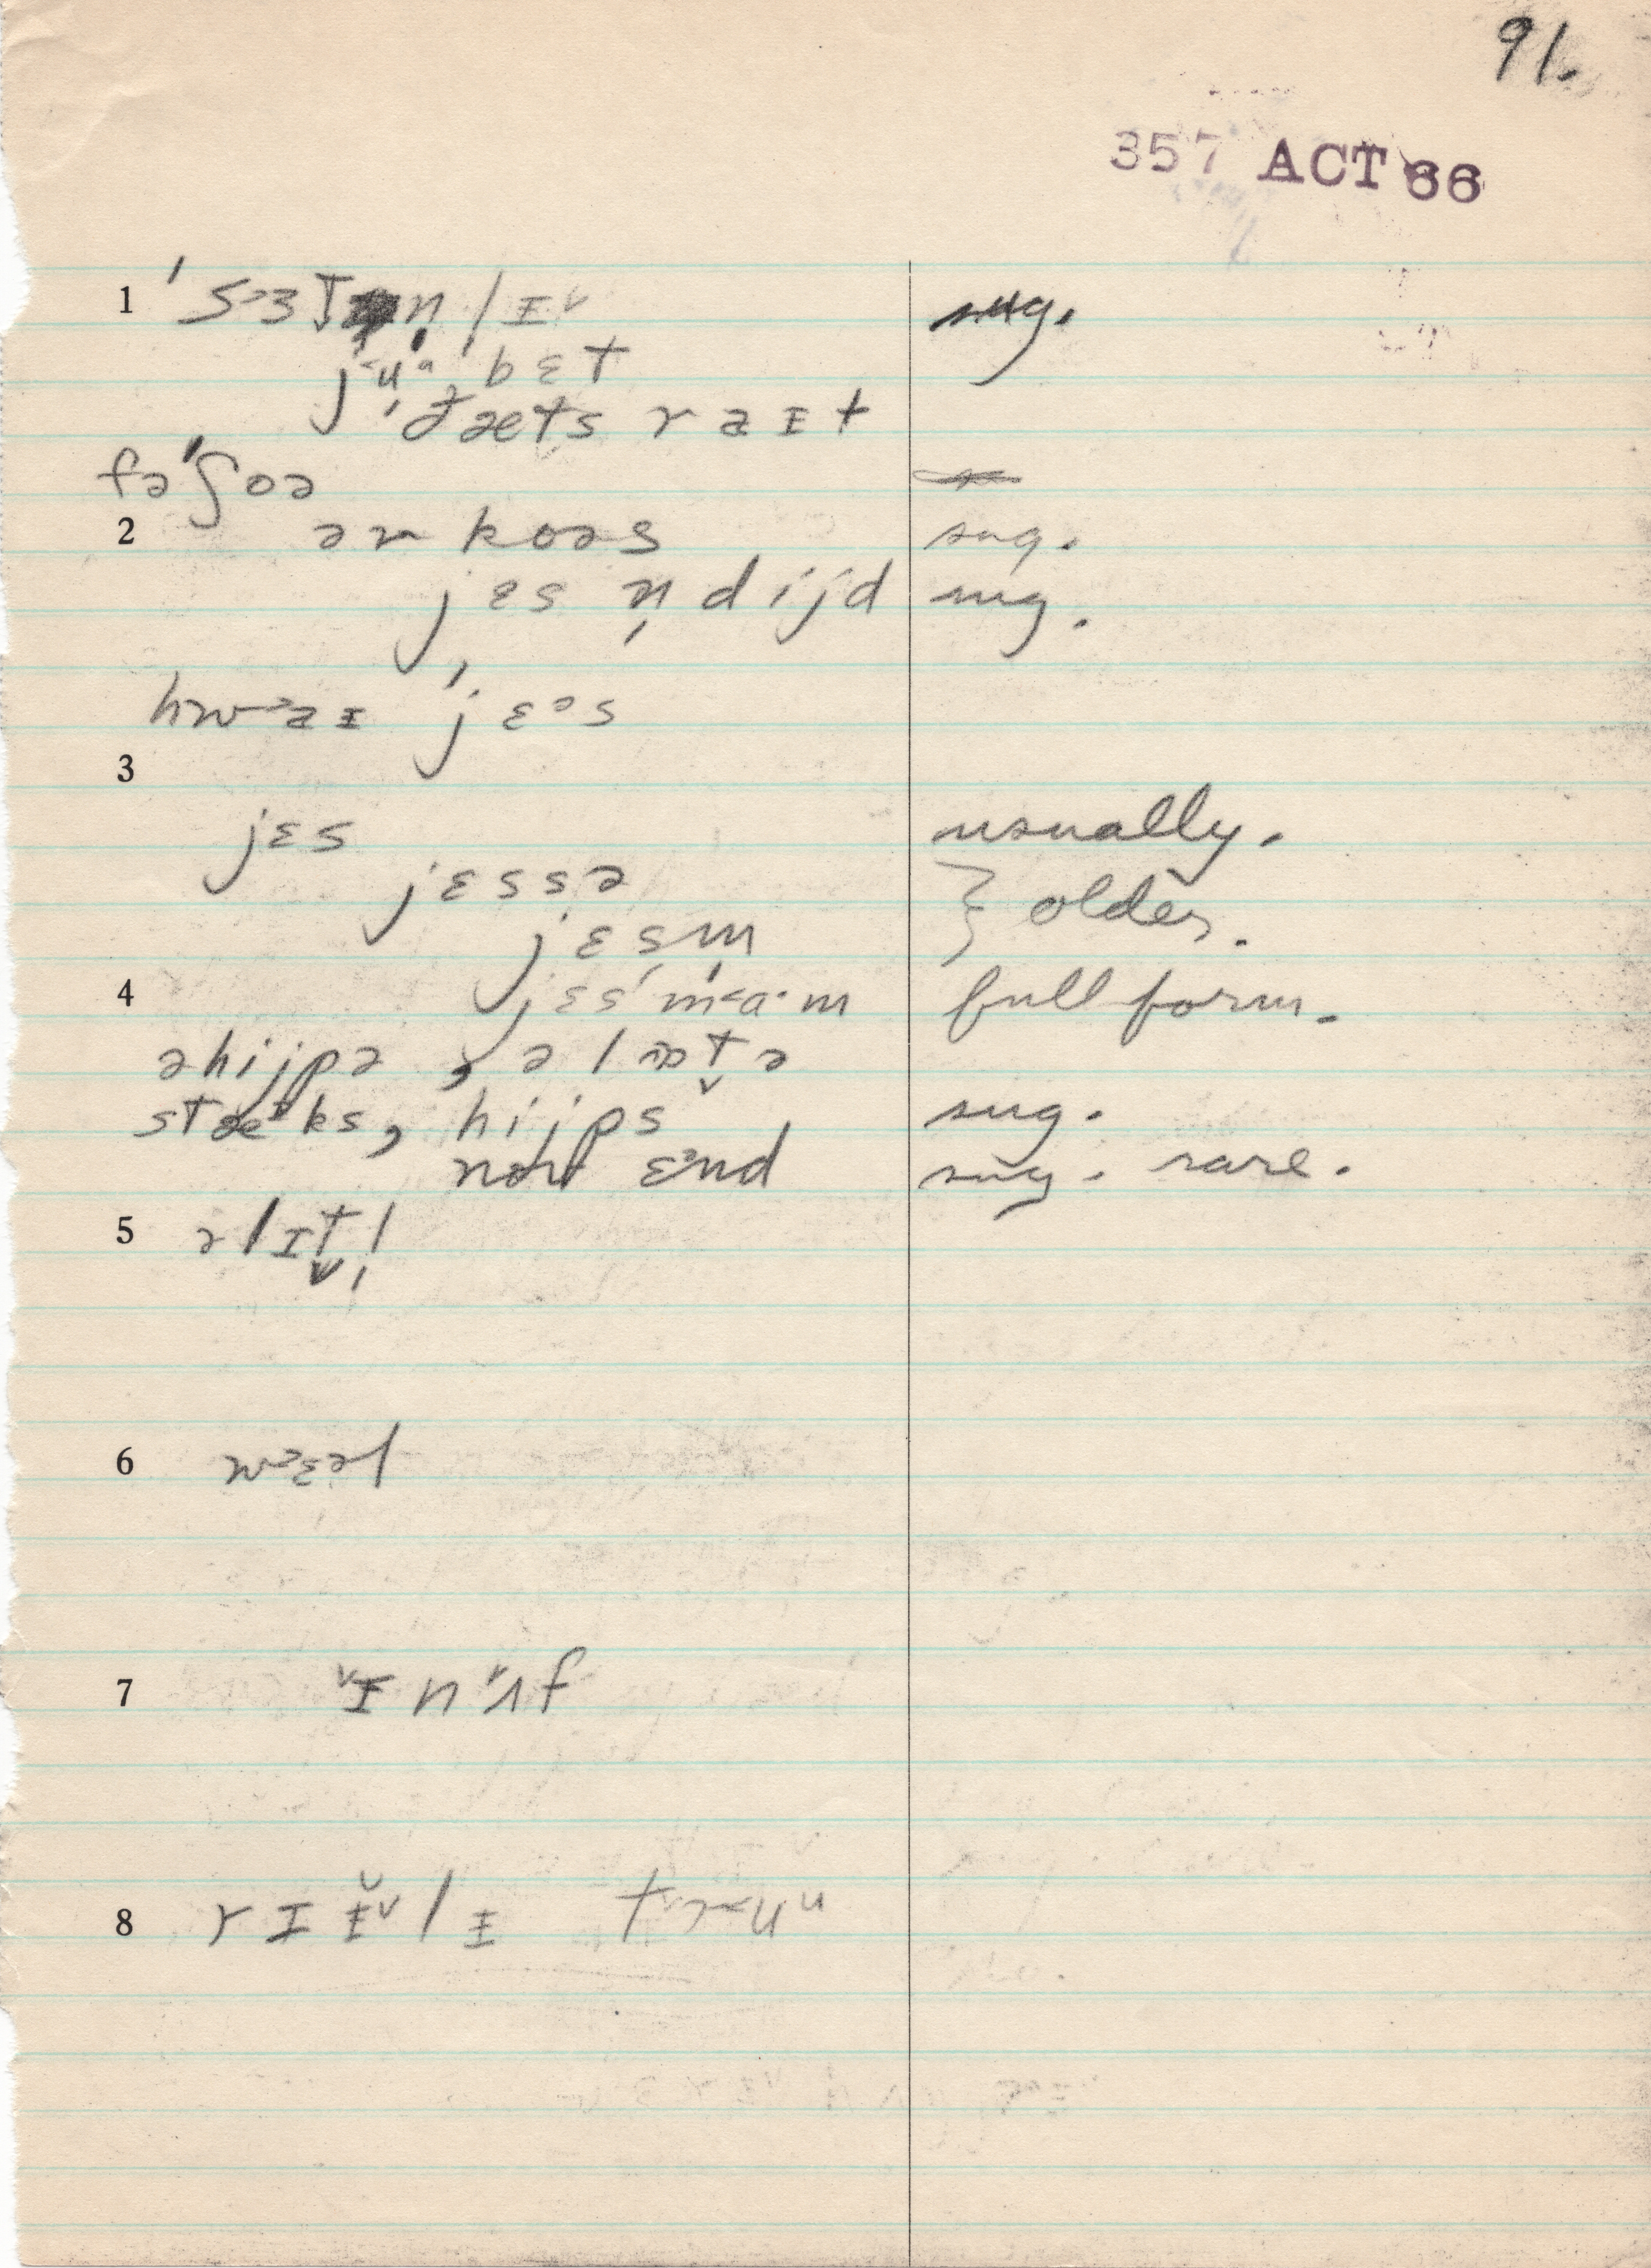 91.
357 ACT 66
1 'sɜtn̩lɪ˅ sug.
jʉ bɛt
ðæts raɪt
fə'ʃoə
2 əv koəs sug.
jɛs n̩dijd sug.
hwaɪ 'jɛᵊs
3
jɛs usually.
jɛssə } older.
jɛsm̩
4 jɛs'ma·m full form.
əhijpə, əlɒt̬ə
stæᵊks, hijps sug.
noʊ ɛnd sug. rare.
5 əlɪt̬l̩
6 wɛəl
7 ɪnʌf
8 rɪɪ̆˅lɪ